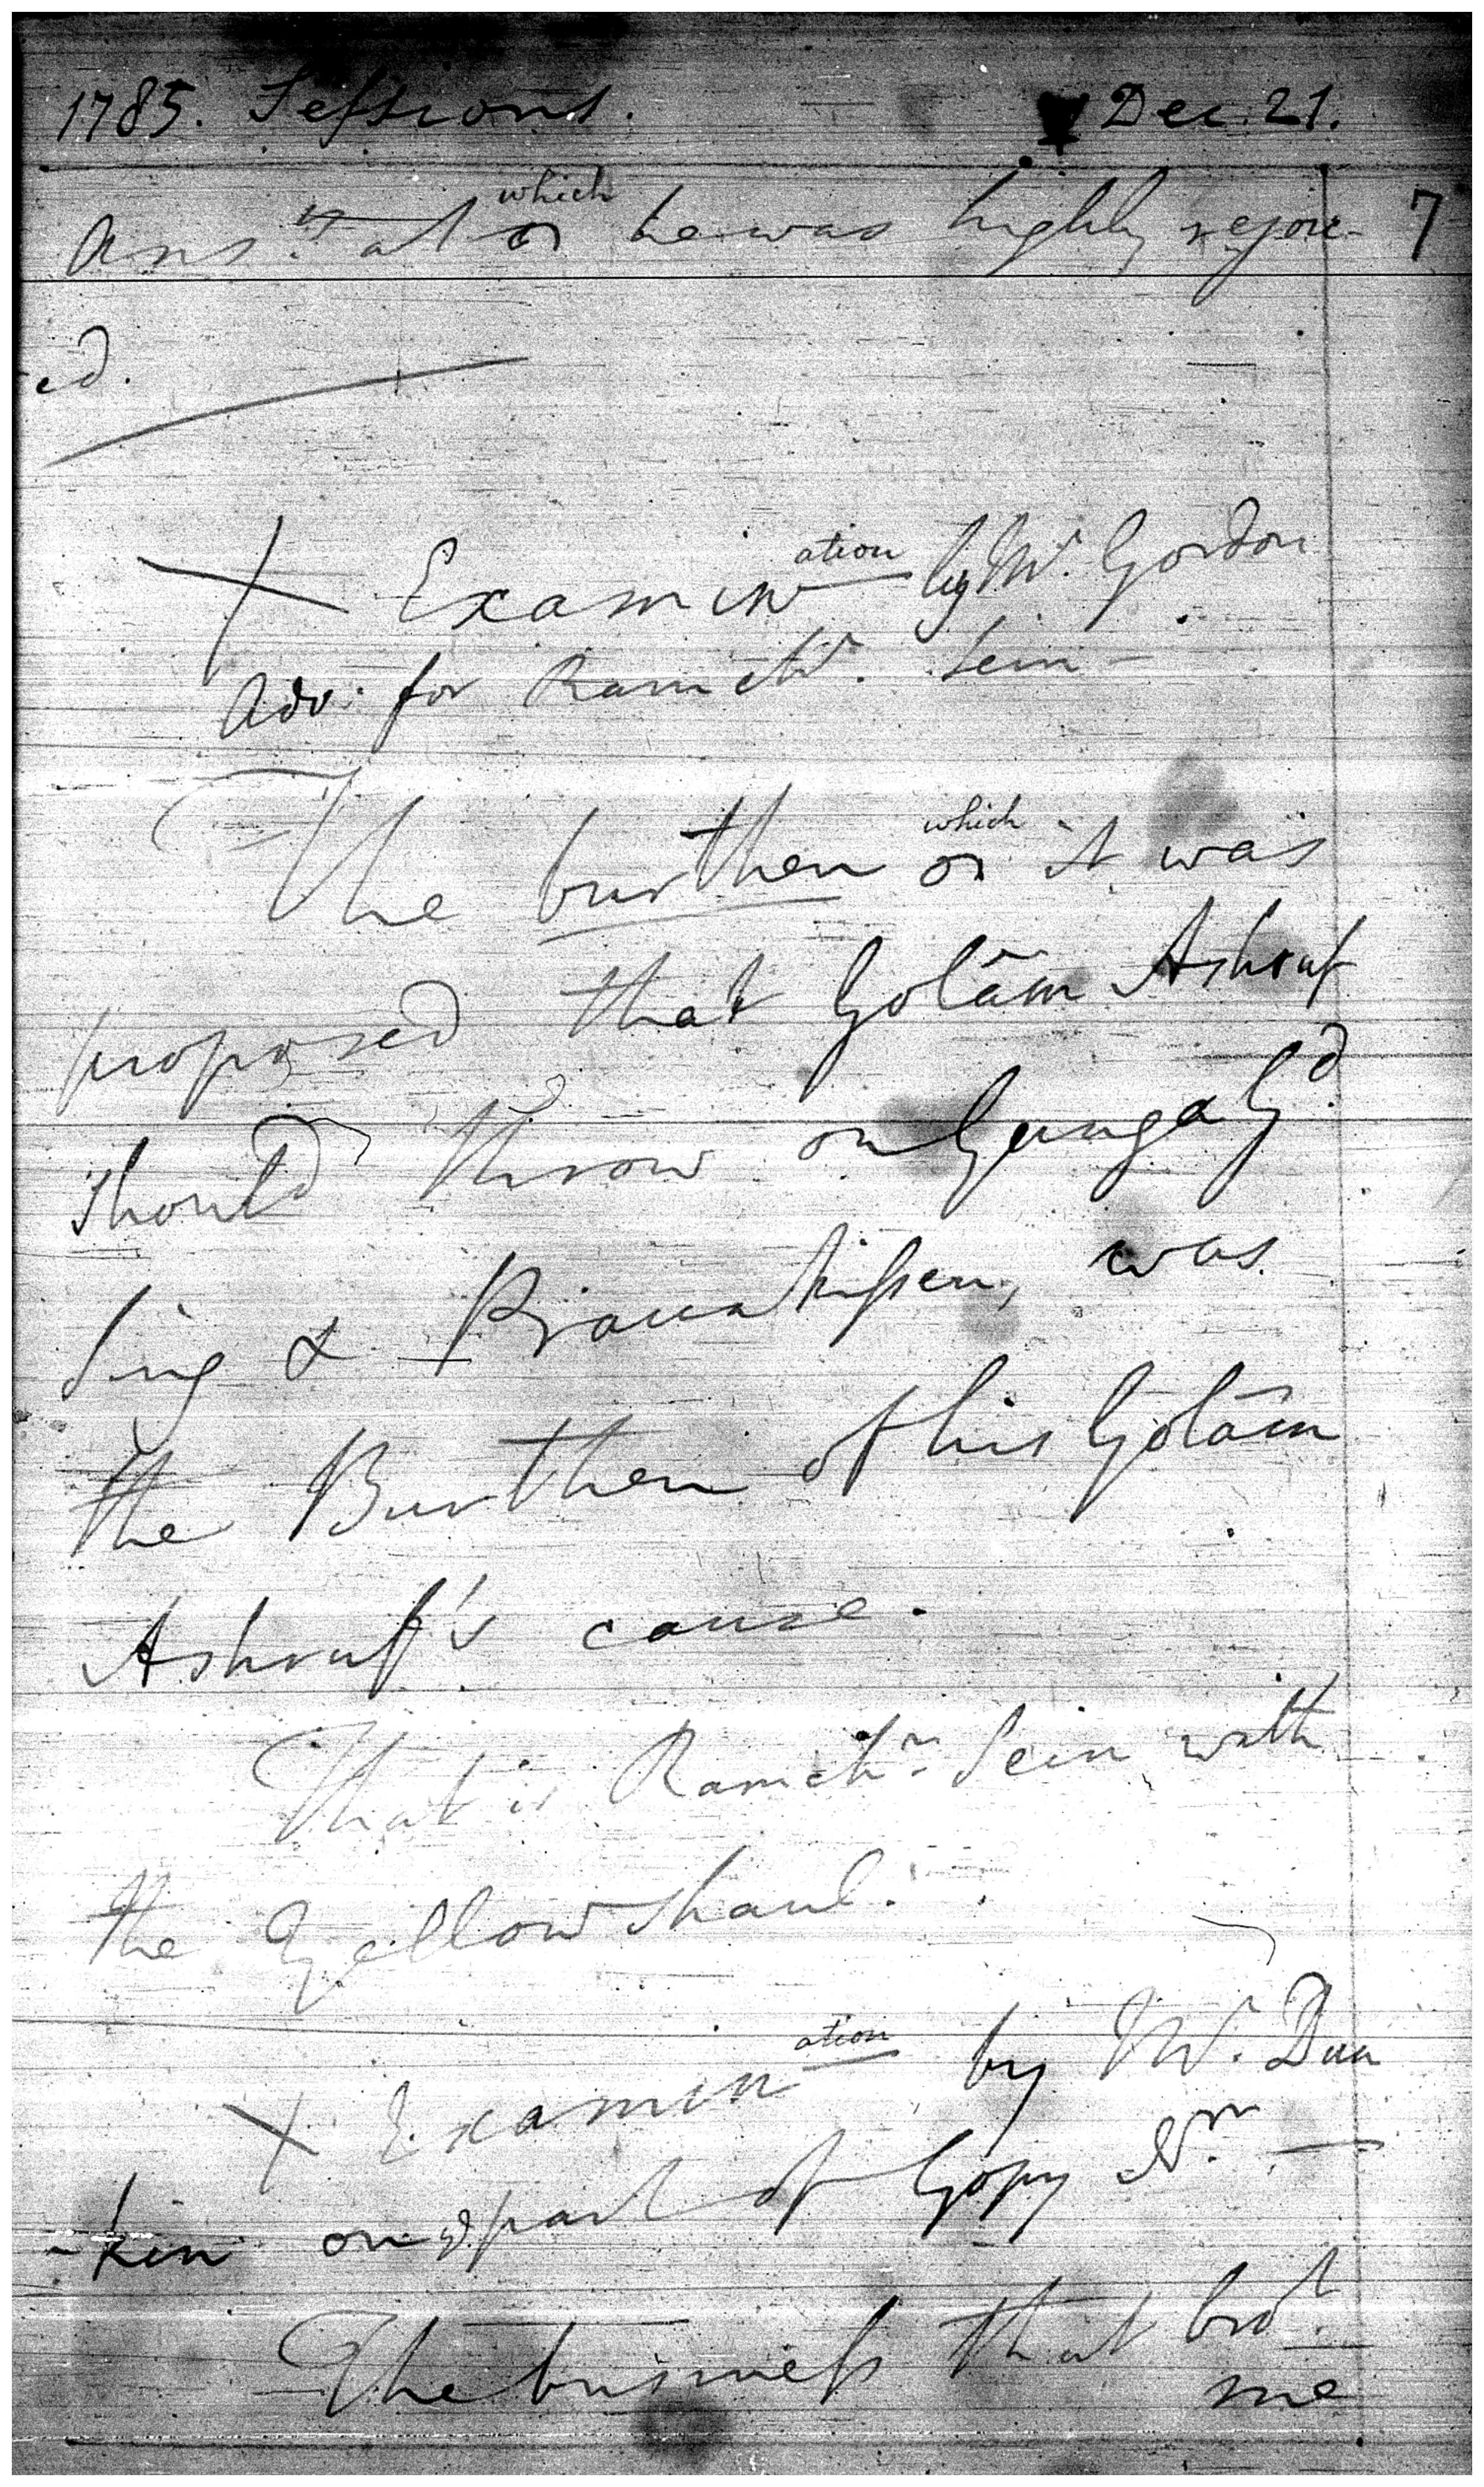 1785. Sessions. Dec. 21.
which
Ans.rs at he was highly rejoic- 7
-ed.
ation
X Examin by Mr. Gordon
Adv: for Ramchr. Sein -
which
The burthen it was
proposed that Golâm Ashruf
should throw on Gunga Gd.
Sing & Pranakissen, was
the Burthen of his Golâm
Ashruf's cause.
That is Ramchr. Sein with
the Yellow Shaul.
ation
X Examin by Mr. Dun
-kin on part of Gopy Nn. —
The business that brot.
me